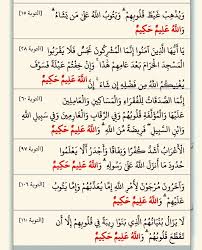 وَيُذْهِبْ غَيْظَ قُلُوبِهِمْ ۗ وَيَتُوبُ اللَّهُ عَلَىٰ مَن يَشَاءُ ۗ
وَاللَّهُ عَلِيمٌ حَكِيمٌ [التوبة ١٥]
يَا أَيُّهَا الَّذِينَ آمَنُوا إِنَّمَا الْمُشْرِكُونَ نَجَسٌ فَلَا يَقْرَبُوا [التوبة ٢٨]
الْمَسْجِدَ الْحَرَامَ بَعْدَ عَامِهِمْ هَٰذَا ۚ وَإِنْ خِفْتُمْ عَيْلَةً فَسَوْفَ
يُغْنِيكُمُ اللَّهُ مِن فَضْلِهِ إِن شَاءَ ۚ إِنَّ اللَّهَ عَلِيمٌ حَكِيمٌ
إِنَّمَا الصَّدَقَاتُ لِلْفُقَرَاءِ وَالْمَسَاكِينِ وَالْعَامِلِينَ
اللَّهِ ۗ وَاللَّهُ عَلِيمٌ حَكِيمٌ
الْأَعْرَابُ أَشَدُّ كُفْرًا وَنِفَاقًا وَأَجْدَرُ أَلَّا يَعْلَمُوا [التوبة ٩٧]
عَلَىٰ رَسُولِهِ ۗ وَاللَّهُ عَلِيمٌ حَكِيمٌ
وَآخَرُونَ مُرْجَوْنَ لِأَمْرِ اللَّهِ إِمَّا يُعَذِّبُهُمْ وَإِمَّا يَتُوبُ [التوبة ١٠٦]
عَلَيْهِمْ ۗ وَاللَّهُ عَلِيمٌ حَكِيمٌ
لَا يَزَالُ بُنْيَانُهُمُ الَّذِي بَنَوْا رِيبَةً فِي قُلُوبِهِمْ إِلَّا أَن [التوبة ١١٠]
تَقَطَّعَ قُلُوبُهُمْ ۗ وَاللَّهُ عَلِيمٌ حَكِيمٌ